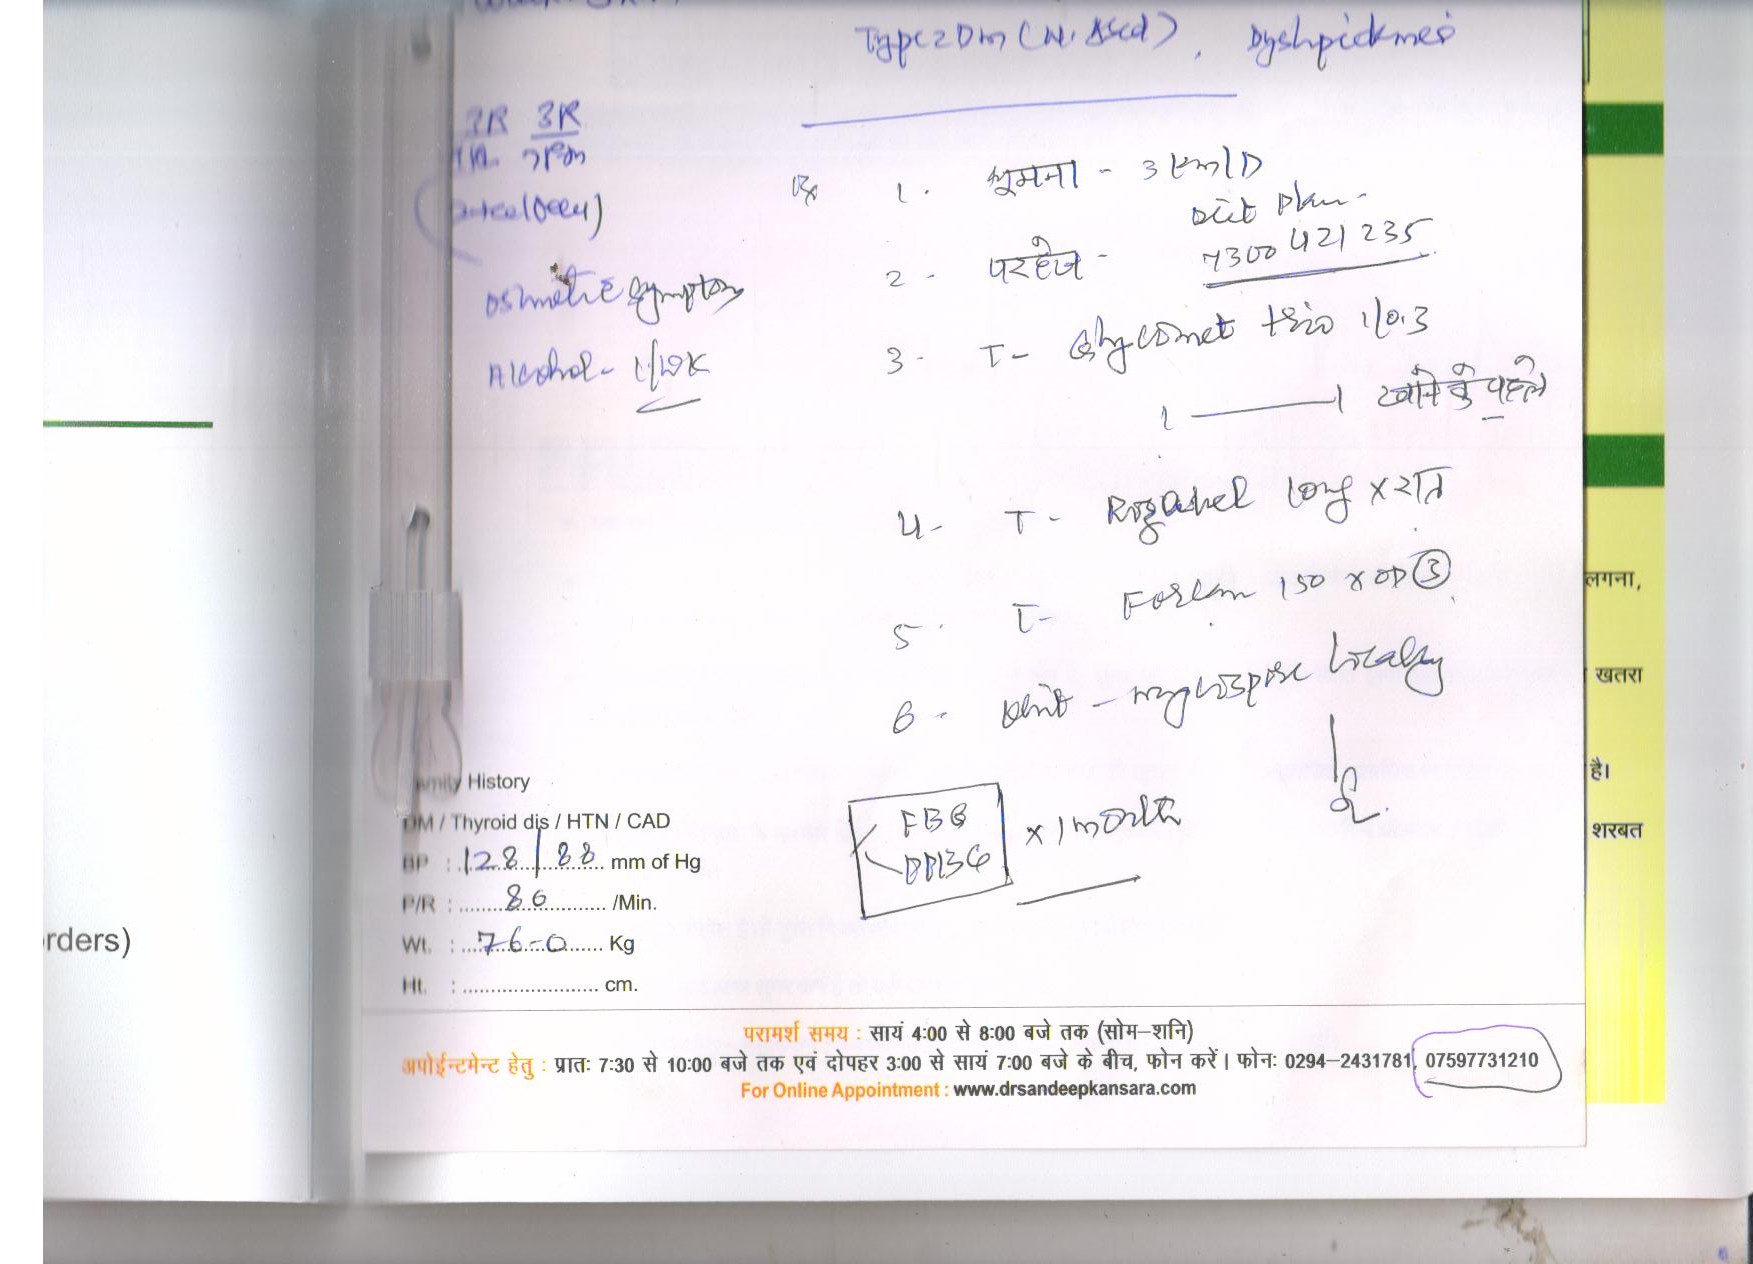 Type 2 Dm (N. Ascd), Dyshpidkmes
3R 3R
Osmotic symptom
Alcohol - 1/wk
Rx 1. घूमना - 3 Km/D
Diet Plan -
2 - परहेज - 7300 421 235
3 - T - Glycomet trio 1/0.3
1 ——— 1 खाने के पहले
4 - T - Long x रात्रि
5. T - 150 x OD ③
6 - Oint - locally
FBG
PPBG
x 1 month
लगना,
खतरा
है।
शरबत
rders)
Family History
DM / Thyroid dis / HTN / CAD
BP : 128/88 mm of Hg
P/R : 86 /Min.
Wt. : 76-0 Kg
Ht. : cm.
परामर्श समय : सायं 4:00 से 8:00 बजे तक (सोम–शनि)
अपोईन्टमेन्ट हेतु : प्रातः 7:30 से 10:00 बजे तक एवं दोपहर 3:00 से सायं 7:00 बजे के बीच, फोन करें। फोनः 0294–2431781, 07597731210
For Online Appointment : www.drsandeepkansara.com